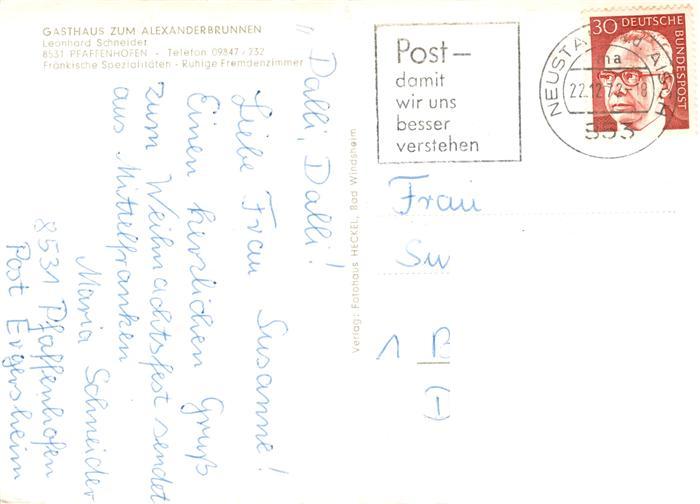 GASTHAUS ZUM ALEXANDERBRUNNEN
Leonhard Schneider
8531 PFAFFENHOFEN - Telefon 09847 - 232
Fränkische Spezialitäten - Ruhige Fremdenzimmer
"Dalli, Dalli!
Liebe Frau Susanne!
Einen herzlichen Gruß
zum Weihnachtsfest sendet
aus Mittelfranken
Maria Schneider
8531 Pfaffenhofen
Post Ergersheim
Verlag: Fotohaus HECKEL, Bad Windsheim
Post—
damit
wir uns
besser
verstehen
NEUSTADT AISCH
na
22.12.72-18
853
30 DEUTSCHE
BUNDESPOST
Frau
Su
1 B
(